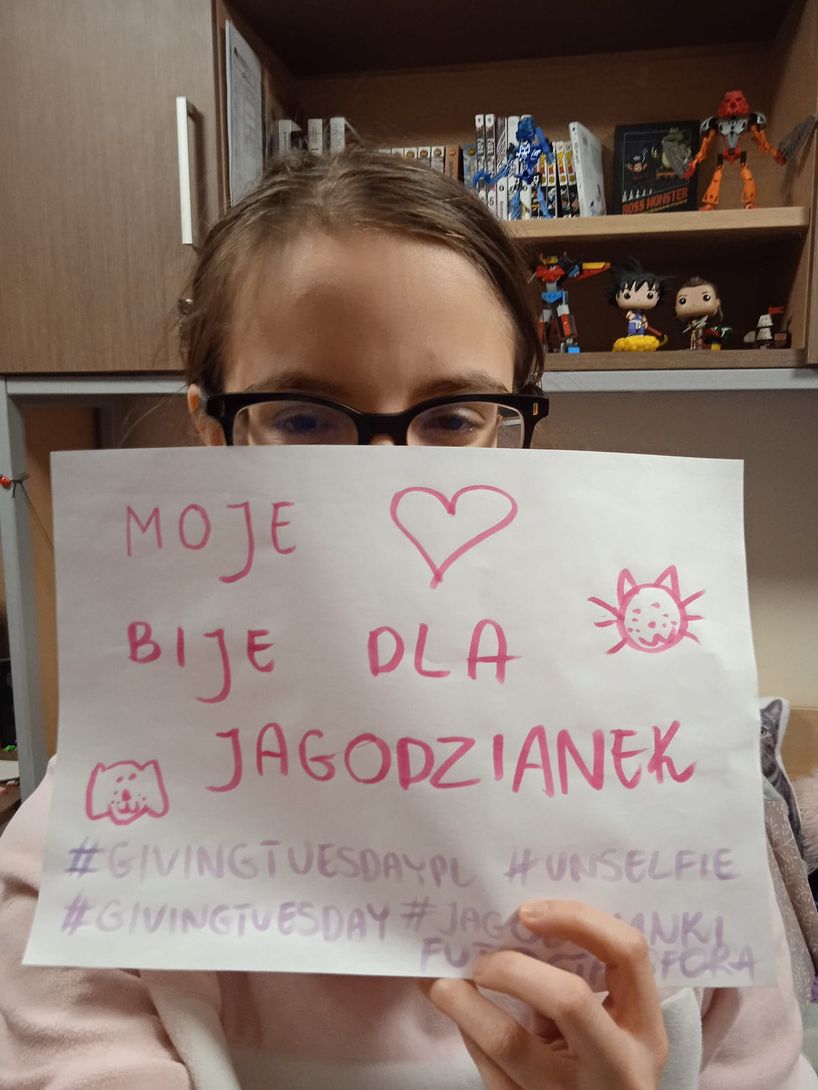 BOSS MONSTER
MOJE
BIJE DLA
JAGODZIANEK
#GIVINGTUESDAYPL #UNSELFIE
#GIVINGTUESDAY